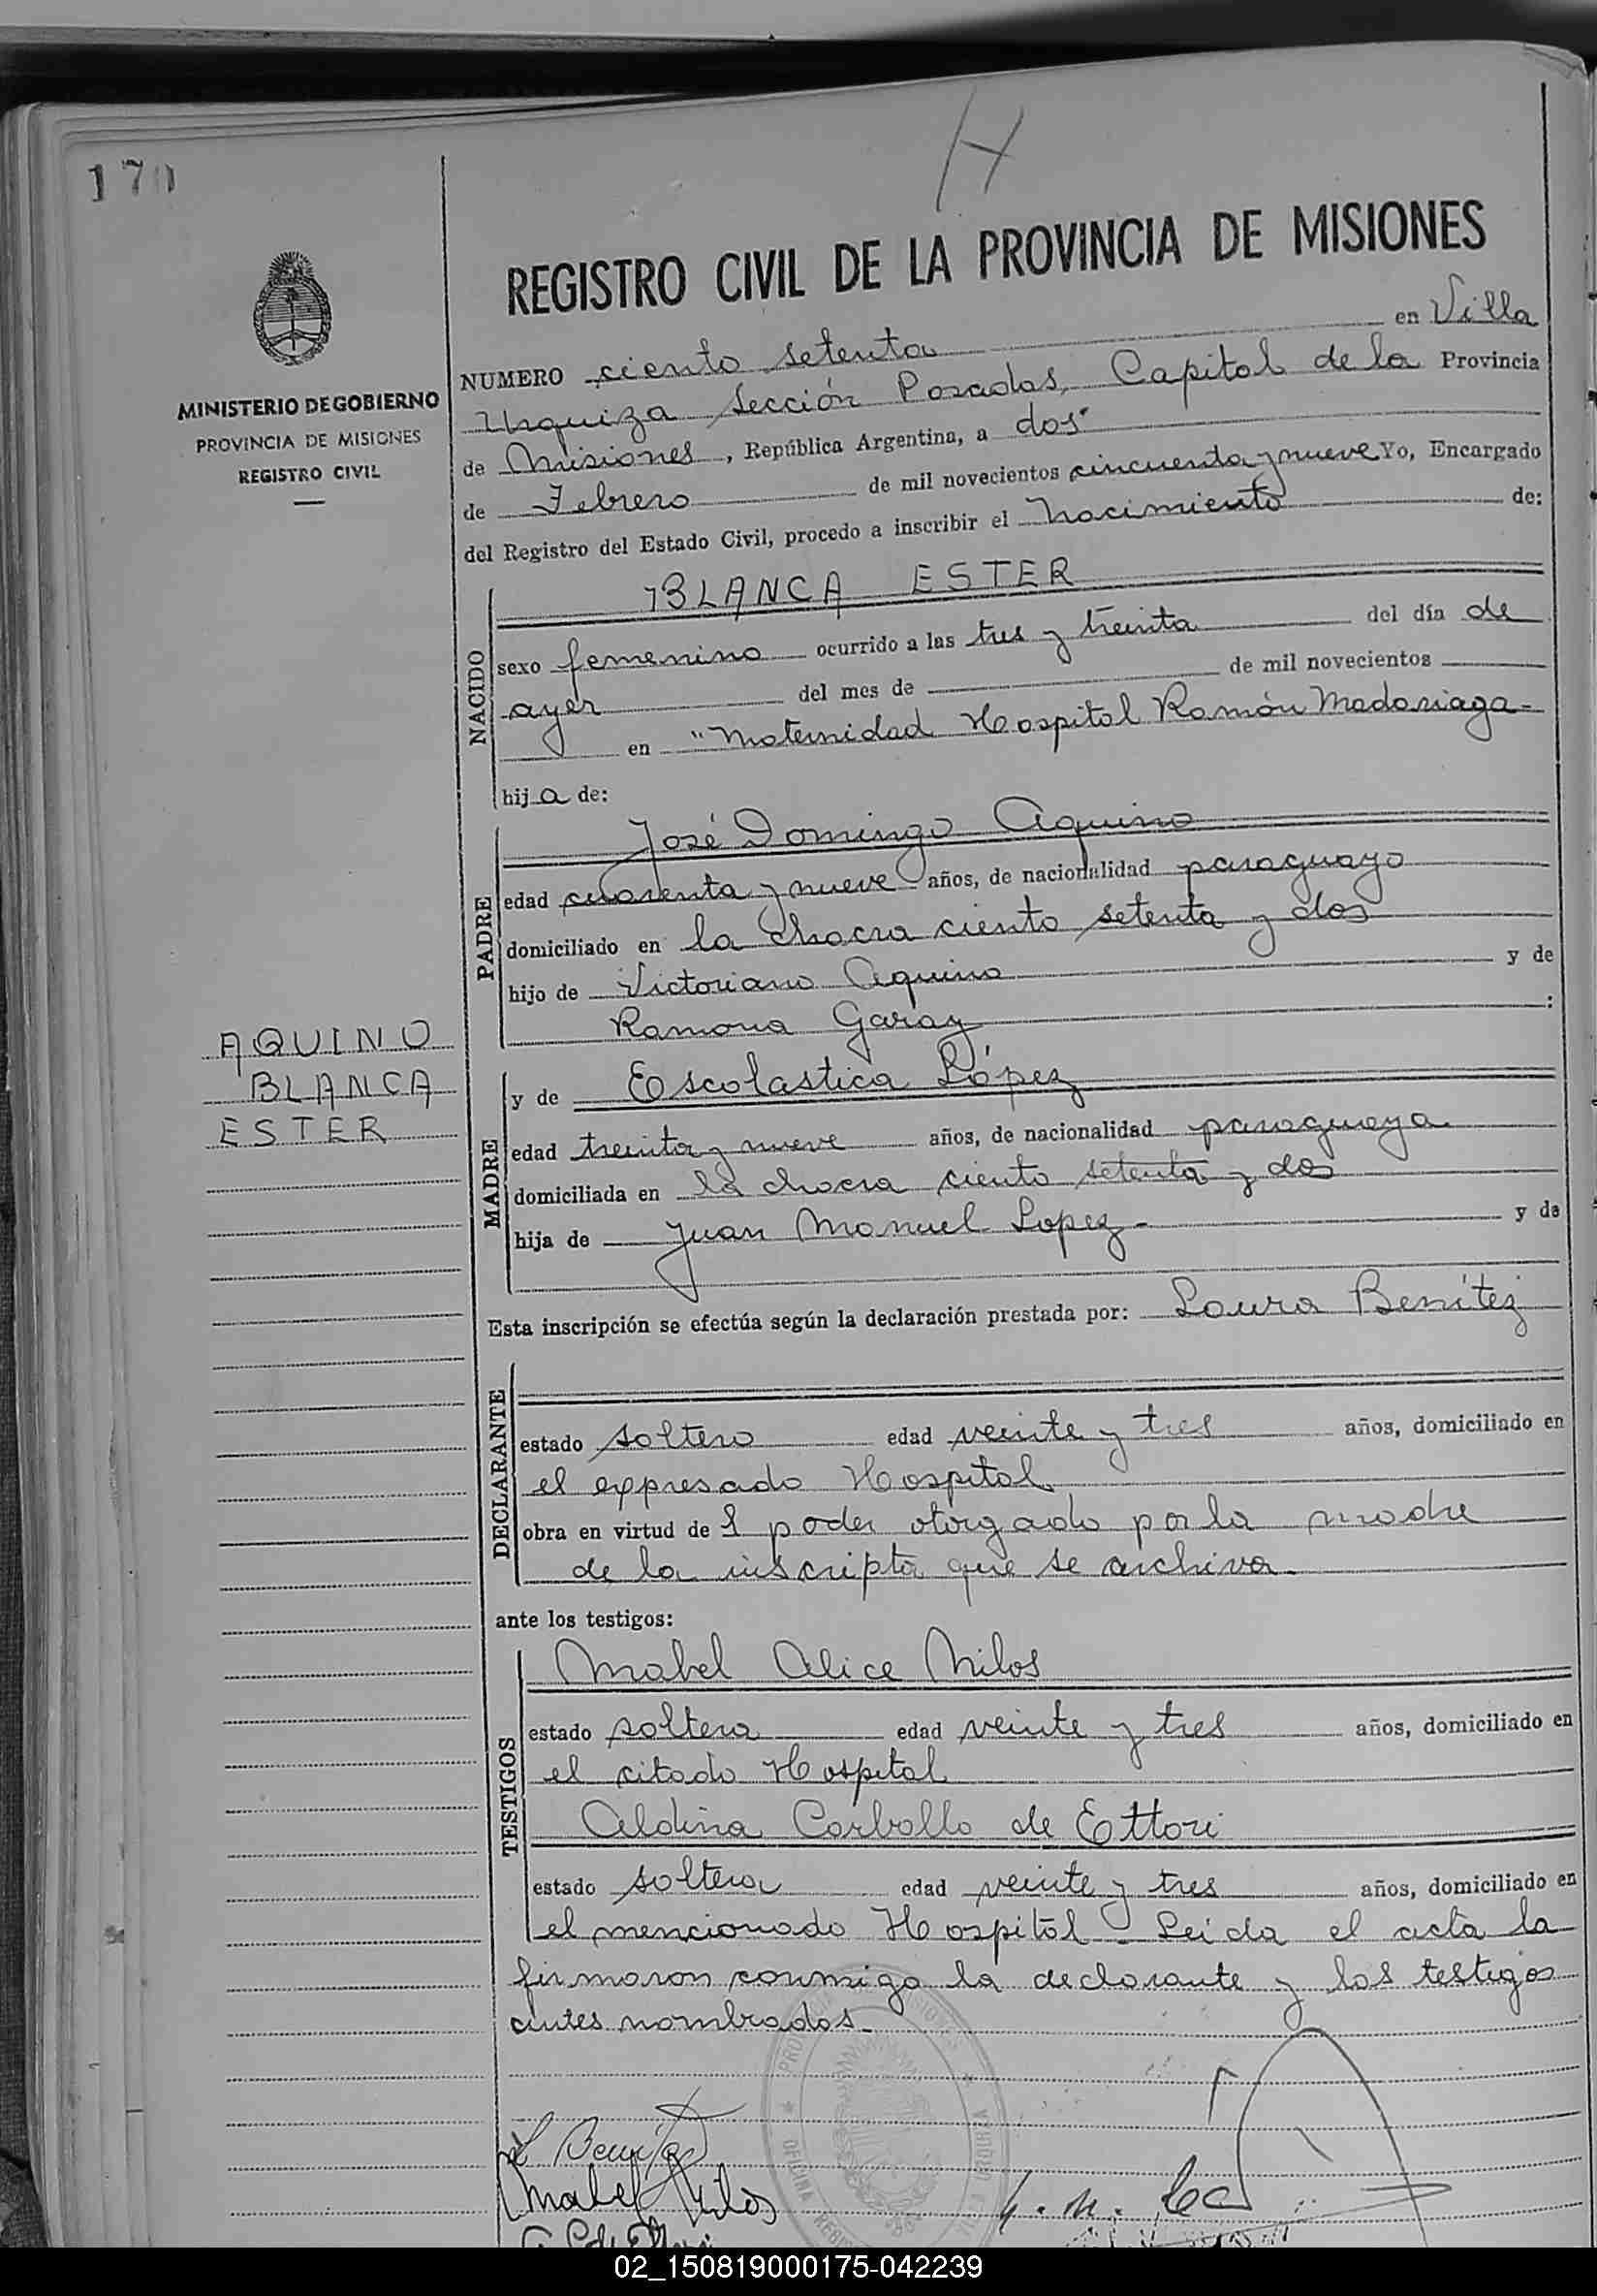 170
H
MINISTERIO DE GOBIERNO
PROVINCIA DE MISIONES
REGISTRO CIVIL
REGISTRO CIVIL DE LA PROVINCIA DE MISIONES
NUMERO ciento setenta en Villa
Urquiza Sección Posadas, Capital de la Provincia
de Misiones, República Argentina, a dos
de Febrero de mil novecientos cincuenta y nueve Yo, Encargado
del Registro del Estado Civil, procedo a inscribir el nacimiento de:
NACIDO
BLANCA ESTER
sexo femenino ocurrido a las tres y treinta del día de
ayer del mes de de mil novecientos
en "Maternidad Hospital Ramón Madariaga-
hija de:
PADRE
José Domingo Aquino
edad cuarenta y nueve años, de nacionalidad paraguayo
domiciliado en la chacra ciento setenta y dos
hijo de Victoriano Aquino y de
Ramona Garay :
AQUINO
BLANCA
ESTER
MADRE
y de Escolastica López
edad treinta y nueve años, de nacionalidad paraguaya
domiciliada en la chacra ciento setenta y dos
hija de Juan Manuel Lopez- y de
Esta inscripción se efectúa según la declaración prestada por: Laura Benítez
DECLARANTE
estado soltero edad veinte y tres años, domiciliado en
el expresado Hospital
obra en virtud del poder otorgado por la madre
de la inscripta que se archiva.
ante los testigos:
TESTIGOS
Mabel Alice Milos
estado soltera edad veinte y tres años, domiciliado en
el citado Hospital
Aldina Carballo de Ettori
estado soltera edad veinte y tres años, domiciliado en
el mencionado Hospital. Leida el acta la
firmaron conmigo la declarante y los testigos
antes nombrados.
L Benítez
Mabel Milos
02_150819000175-042239